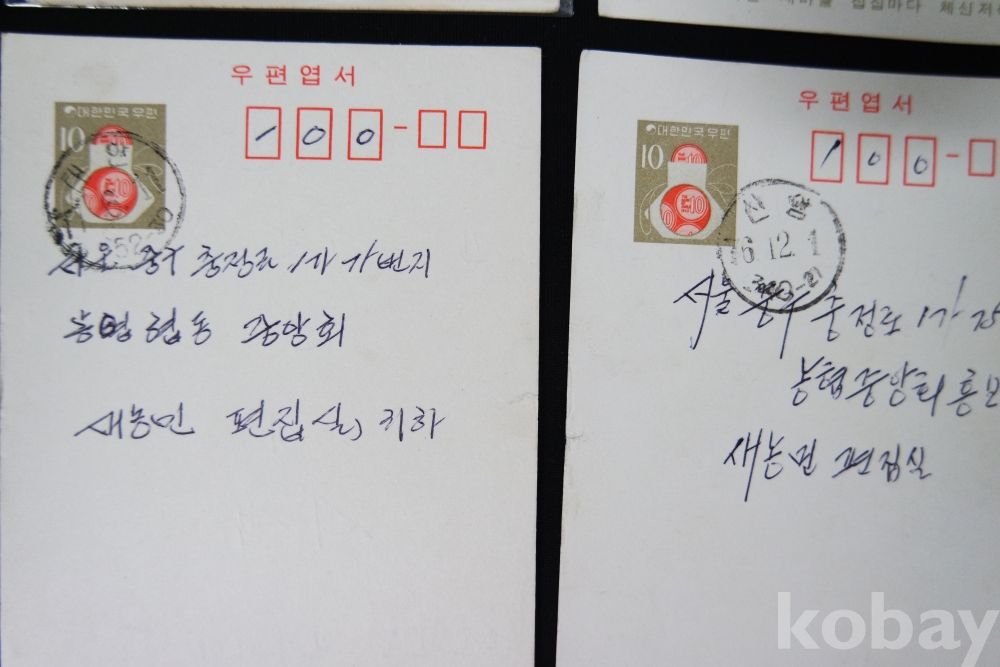 집집마다 체신저
우편엽서
대한민국우편
10
100-
서울 중구 충정로 1가 가번지
농업협동 중앙회
새농민 편집실, 귀하
우편엽서
대한민국우편
10
100-
6.12.1
서울 중구 충정로 1가
농협중앙회 홍보
새농민 편집실
kobay